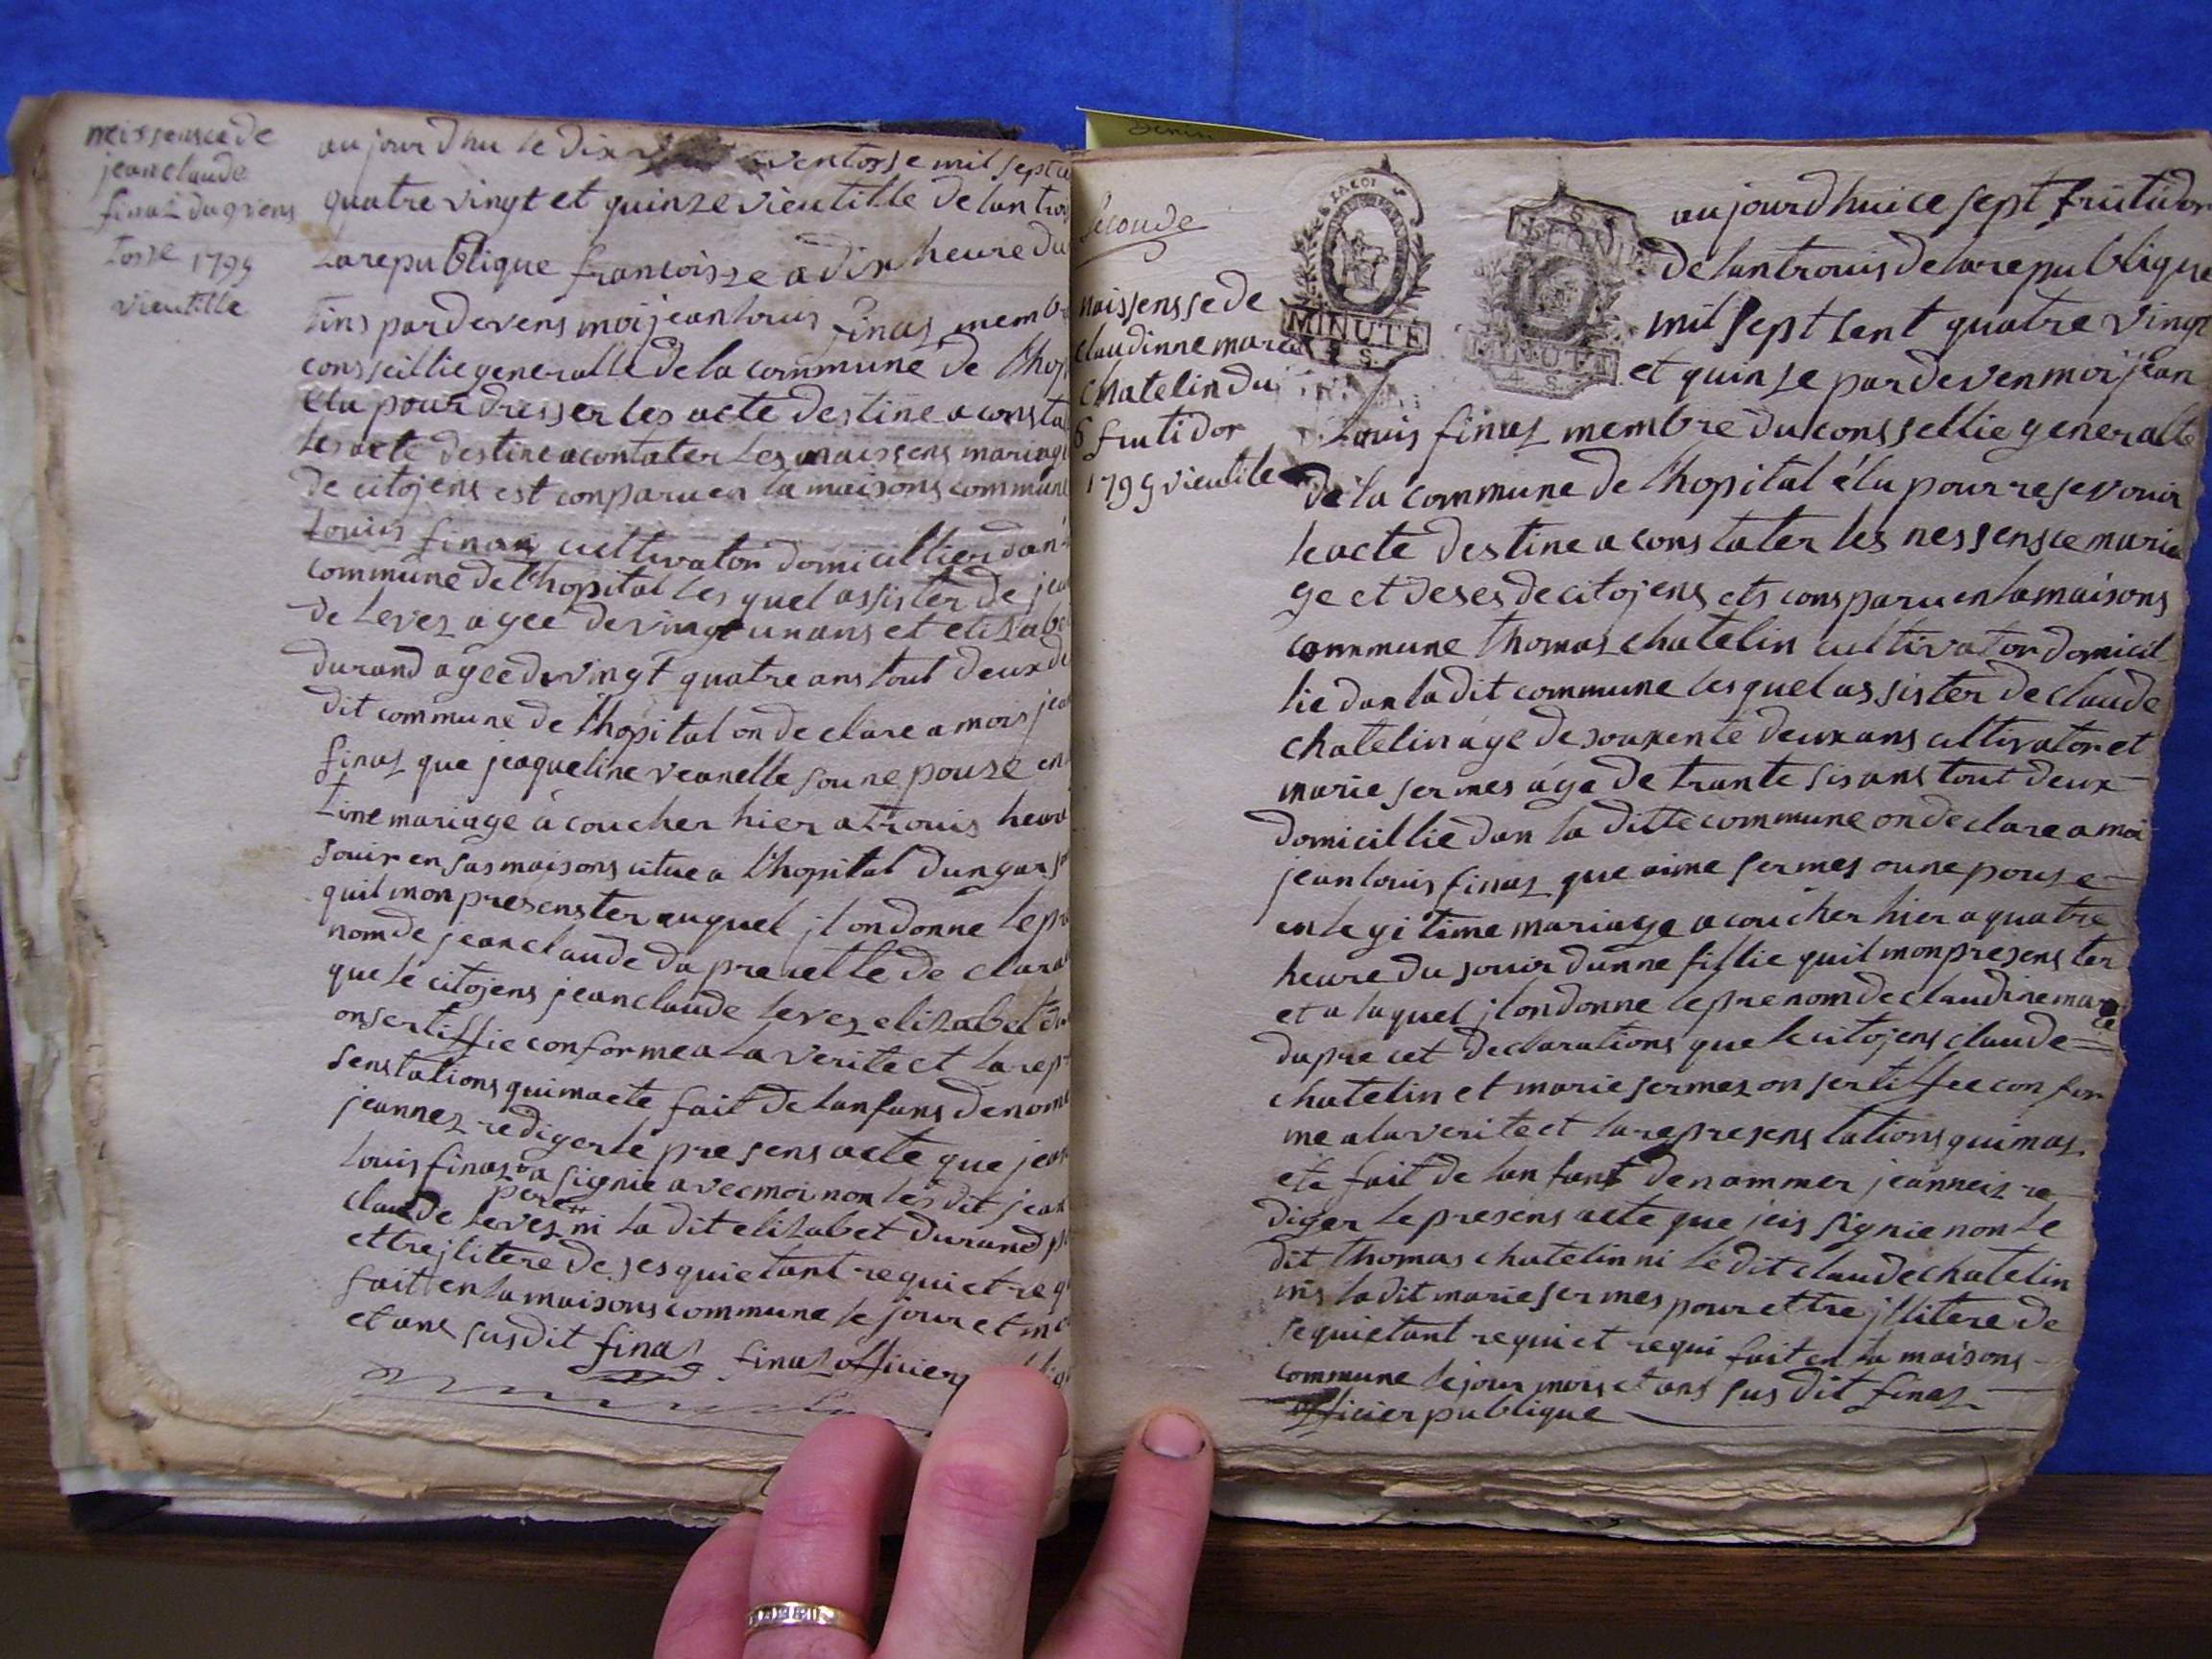 neissensce de
jean claude
finaz du 9 vens
tosse 1795
vieutille
aujourdhu le dix ventosse mil sept ce
quatre vingt et quinze vieutille de lan troi
la republique francoisse a dix heure du
tins pardevens moi jean louis finaz memb
consseillie generalle de la commune de lhop
elu pour dresser les acte destine a consta
les acte destine a contater les naissens mariag
de citojens est conparu en la maisons commune
louis finaz cultivator domicillier dan
commune de lhopital les quel assister de jea
de levez agee de vingt un ans et elisabe
durand agee de vingt quatre ans tout deux d
dit commune de lhopital on declare a mois jea
finaz que jaqueline veanelle soune pouse en
time mariage a coucher hier a trouis heure
souir en sas maisons citue a lhopital dun gars
quil mon presenster auquel jl on donne le pr
nom de jean claude dapre uette de clara
que le citojens jean claude levez elizabet du
on sertiffie conforme a la verite et la rep
senstations qui ma ete fait de lanfans denome
jeannez rediger le presens acte que jean
louis finaz pere a signie avec moi non les dit jean
claude levez ni la dit elizabet durand p
ettre jlitere de ses quietant requi et req
fait en la maisons commune le jour et m
et ans susdit finaz finaz officier
Denis
seconde
naissensse de
claudinne marie
chatelin du
6 frutidor
1795 vieutile
MINUTE
4 S.
MINUTE
4 S.
aujourdhui ce sept frutidor
de lan trouis de la republique
mil sept cent quatre vingt
et quinze pardeven moi jean
Louis finaz membre du conssellie generalle
de la commune de lhopital élu pour resevouir
le acte destine a constater les nessensce maria
ge et deses de citojens ets consparu en la maisons
commune thomas chatelin cultivator domicil
lie dan la dit commune les quel assister de claude
chatelin age de souxente deux ans cultivator et
marie sermes age de trante sis ans tout deux
domicillie dan la ditte commune on declare a moi
jean louis finaz que aime sermes oune pouze
en legitime mariage a coucher hier a quatre
heure du souir dunne fillie quil mon presenster
et a laquel jl on donne le prenom de claudine marie
dapre cet declarations que le citojens claude
chatelin et marie sermez on sertiffee confor
me a la verite et la represenstations qui mas
ete fait de lan fant denommer jeanneiz re
diger le presens acte que jeis signie non le
dit thomas chatelin ni le dit claude chatelin
nis la dit marie sermes pour ettre jllitere de
se quietant requi et requi fait en la maisons
commune le jour mois et ans sus dit finaz
officier publique